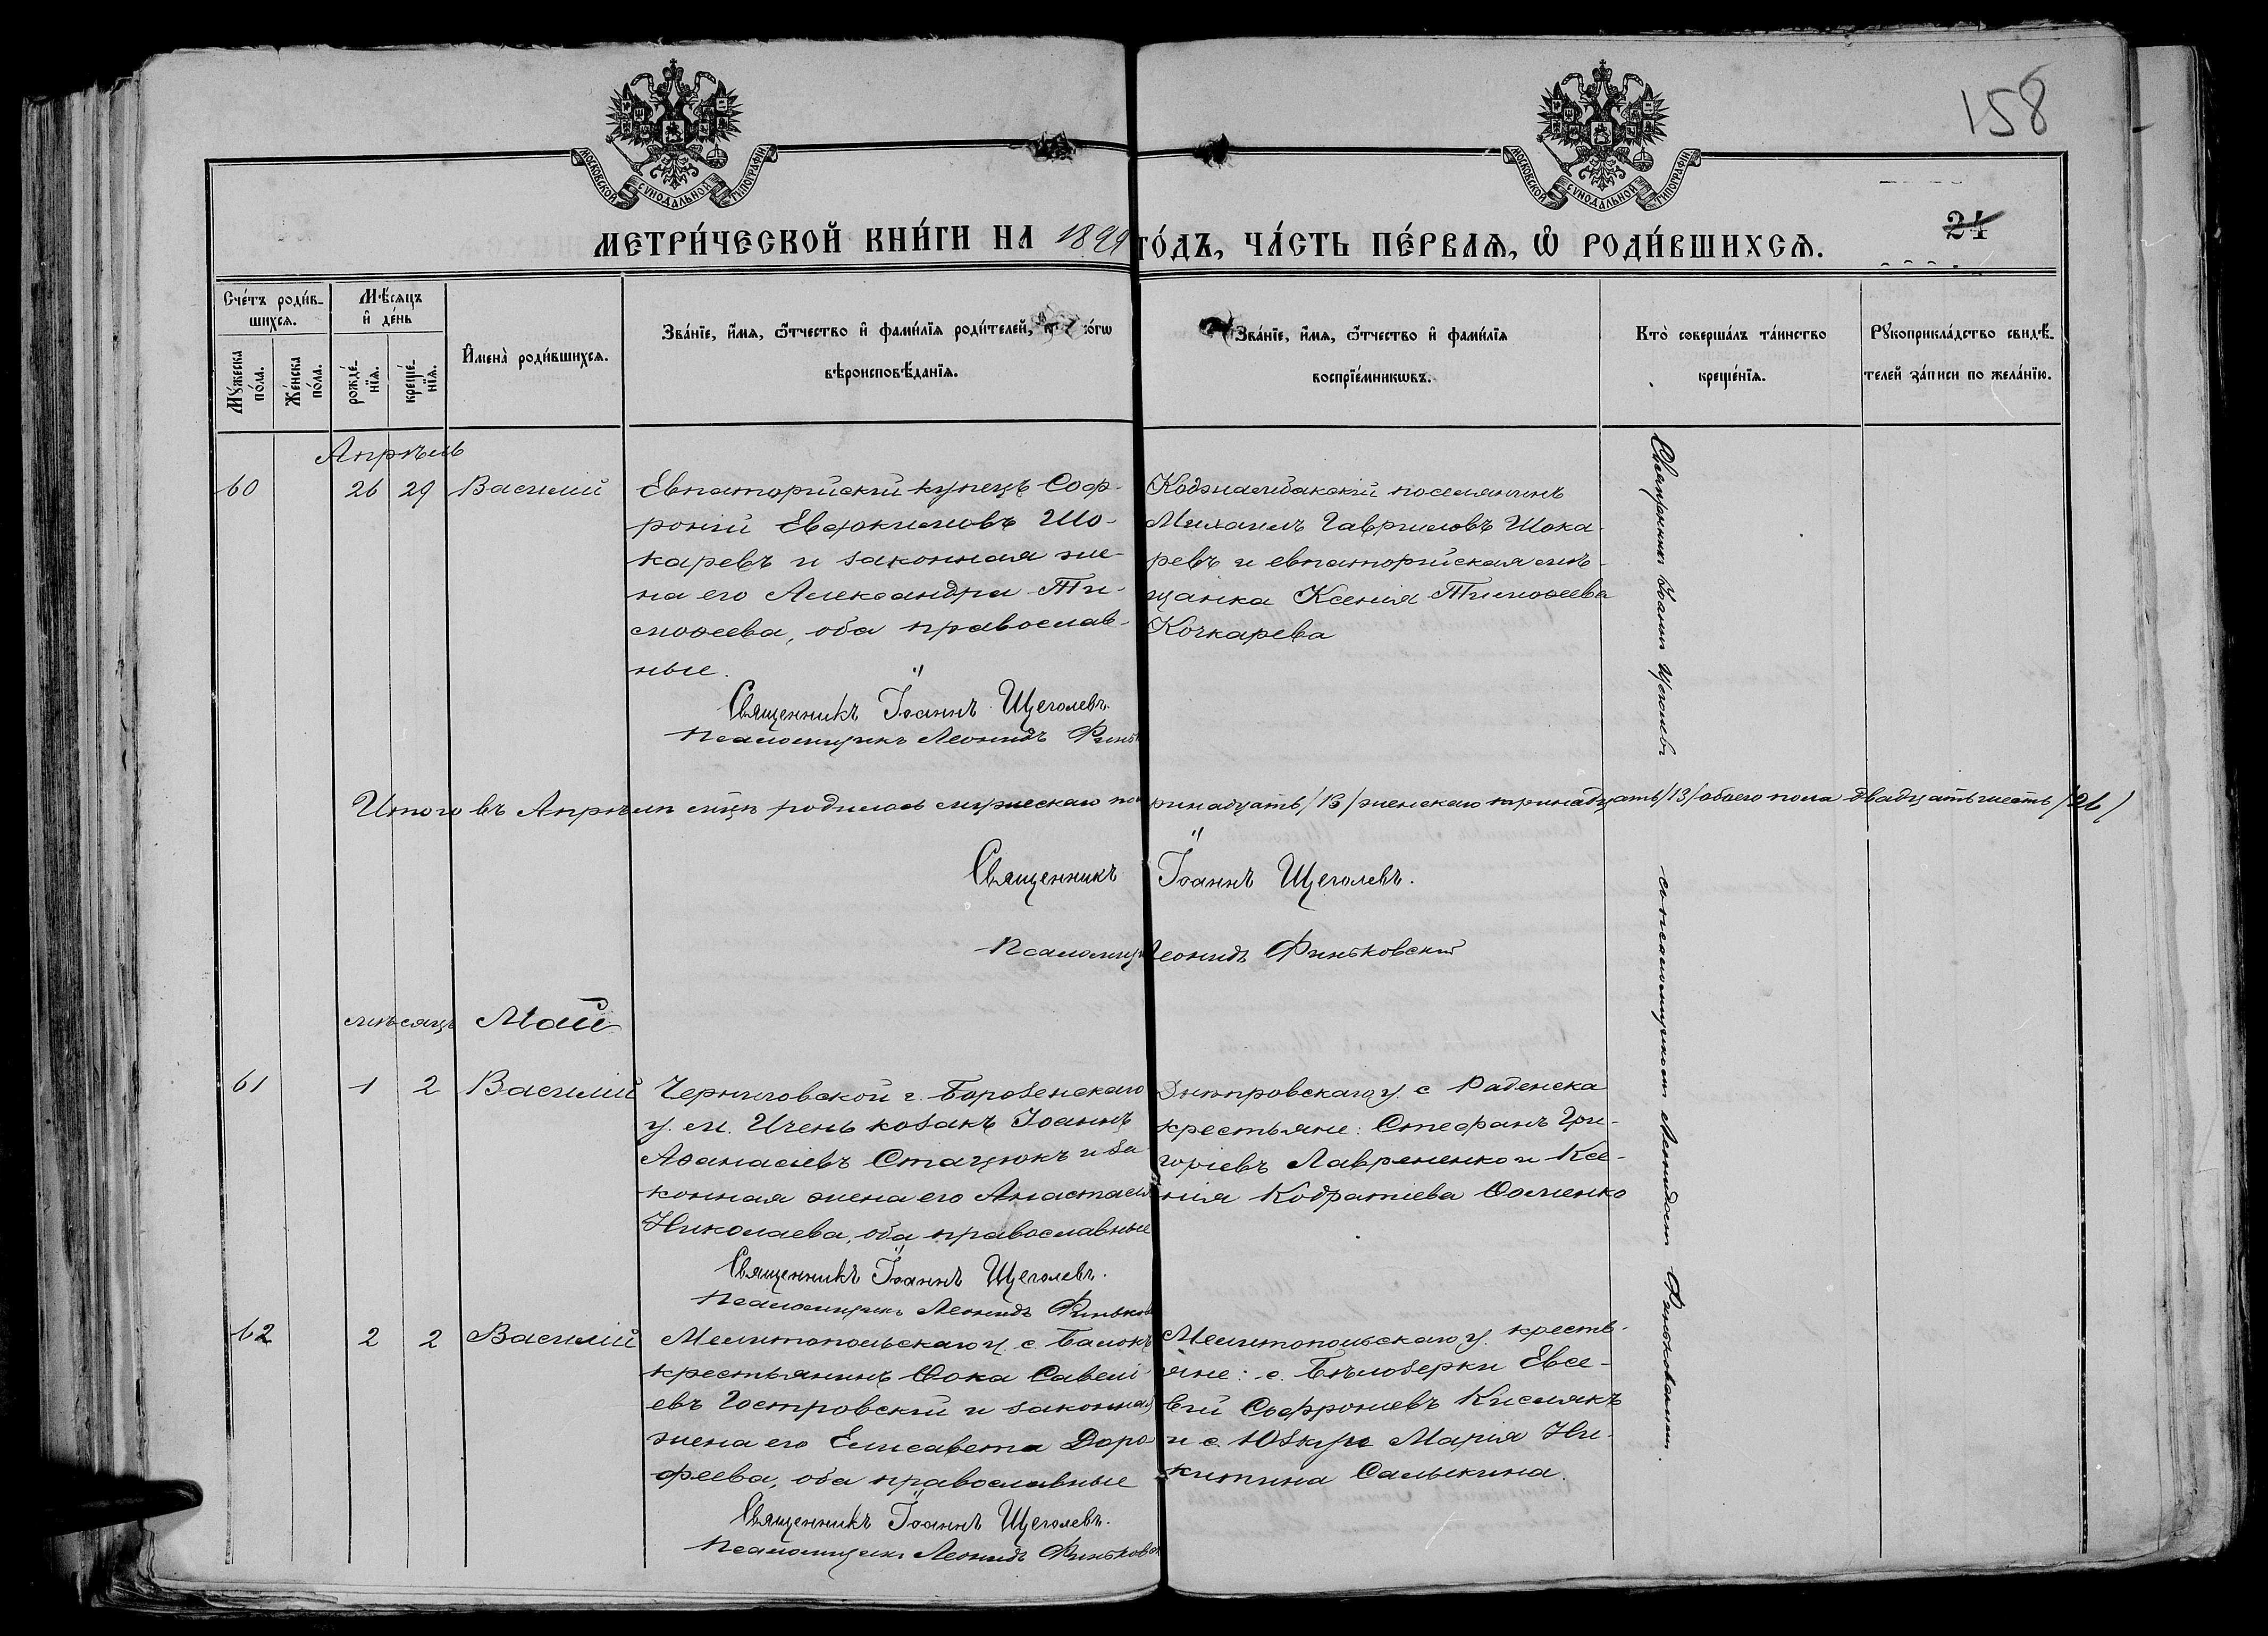 158
МОСКОВСКОЙ СѴНОДАЛЬНОЙ ТИПОГРАФІИ
МОСКОВСКОЙ СѴНОДАЛЬНОЙ ТИПОГРАФІИ
24
МЕТРИ́ЧЕСКОЙ КНИ́ГИ НА 1899 ГО́ДЪ, ЧА́СТЬ ПЕ́РВАѦ, Ѽ РОДИ́ВШИХСѦ.
Сче́тъ роди́в-
шихсѧ.
Му́жеска по́ла.
Же́нска по́ла.
Мѣ́сѧцъ и де́нь
рожде́-нїѧ.
креще́-нїѧ.
Имена̀ роди́вшихсѧ.
Зва́нїе, и́мѧ, ѻ́тчество и фами́лїѧ роди́телей,
вѣроисповѣ́данїѧ.
Зва́нїе, и́мѧ, ѻ́тчество и фами́лїѧ
воспрїе́мникѡвъ.
Кто̀ соверша́лъ та́инство
креще́нїѧ.
Рꙋкоприкла́дство свидѣ́-
телей за́писи по жела́нїю.
Апрѣль
60 26 29 Василій
Евпаторійскій купецъ Соф-
роній Евфокимовъ Шо-
каревъ и законная же-
на его Александра Ти-
моѳеева, оба православ-
ные.
Священникъ Іоаннъ Щеголевъ.
Псаломщикъ Леонидъ Финьк
Коджамбакскій поселянинъ
Михаилъ Гавриловъ Шока-
ревъ и евпаторійская мѣ-
щанка Ксенія Тимоѳеева
Кочкарева
Священникъ Іоаннъ Щеголевъ
съ псаломщикомъ Леонидомъ Финьковскимъ.
Итого въ Апрѣлѣ мцѣ родилось мужескаго по ринадцать /13/ женскаго тринадцать /13/ обоего пола двадцать шесть /26/
Священникъ Іоаннъ Щеголевъ.
Псаломщи Леонидъ Финьковскій
мѣсяцъ Май
61 1 2 Василій
Черниговской г. Борозенскаго
у. м. Ичень козакъ Іоаннъ
Аѳанасіевъ Стацюкъ и за
конная жена его Анастасія
Николаева, оба православные
Священникъ Іоаннъ Щеголевъ.
Псаломщикъ Леонидъ Финьков
Днѣпровскаго у. с Раденска
крестьяне: Стефанъ Гри-
горіевъ Лавриненко и Ксе-
нія Кодратіева Ѳоменко
62 2 2 Василій
Мелитопольскаго у. с. Балокъ
крестьянинъ Ѳока Савелі
евъ Гостровскій и законная
жена его Елисавета Доро
феева, оба православные
Священникъ Іоаннъ Щеголевъ.
Псаломщикъ Леонидъ Финьков
Мелитопольскаго у. кресть-
яне: с. Бѣлозерки Евсе-
вій Софроніевъ Кислякъ
и с. Юзкуи Марія Ни-
китина Салыкина.